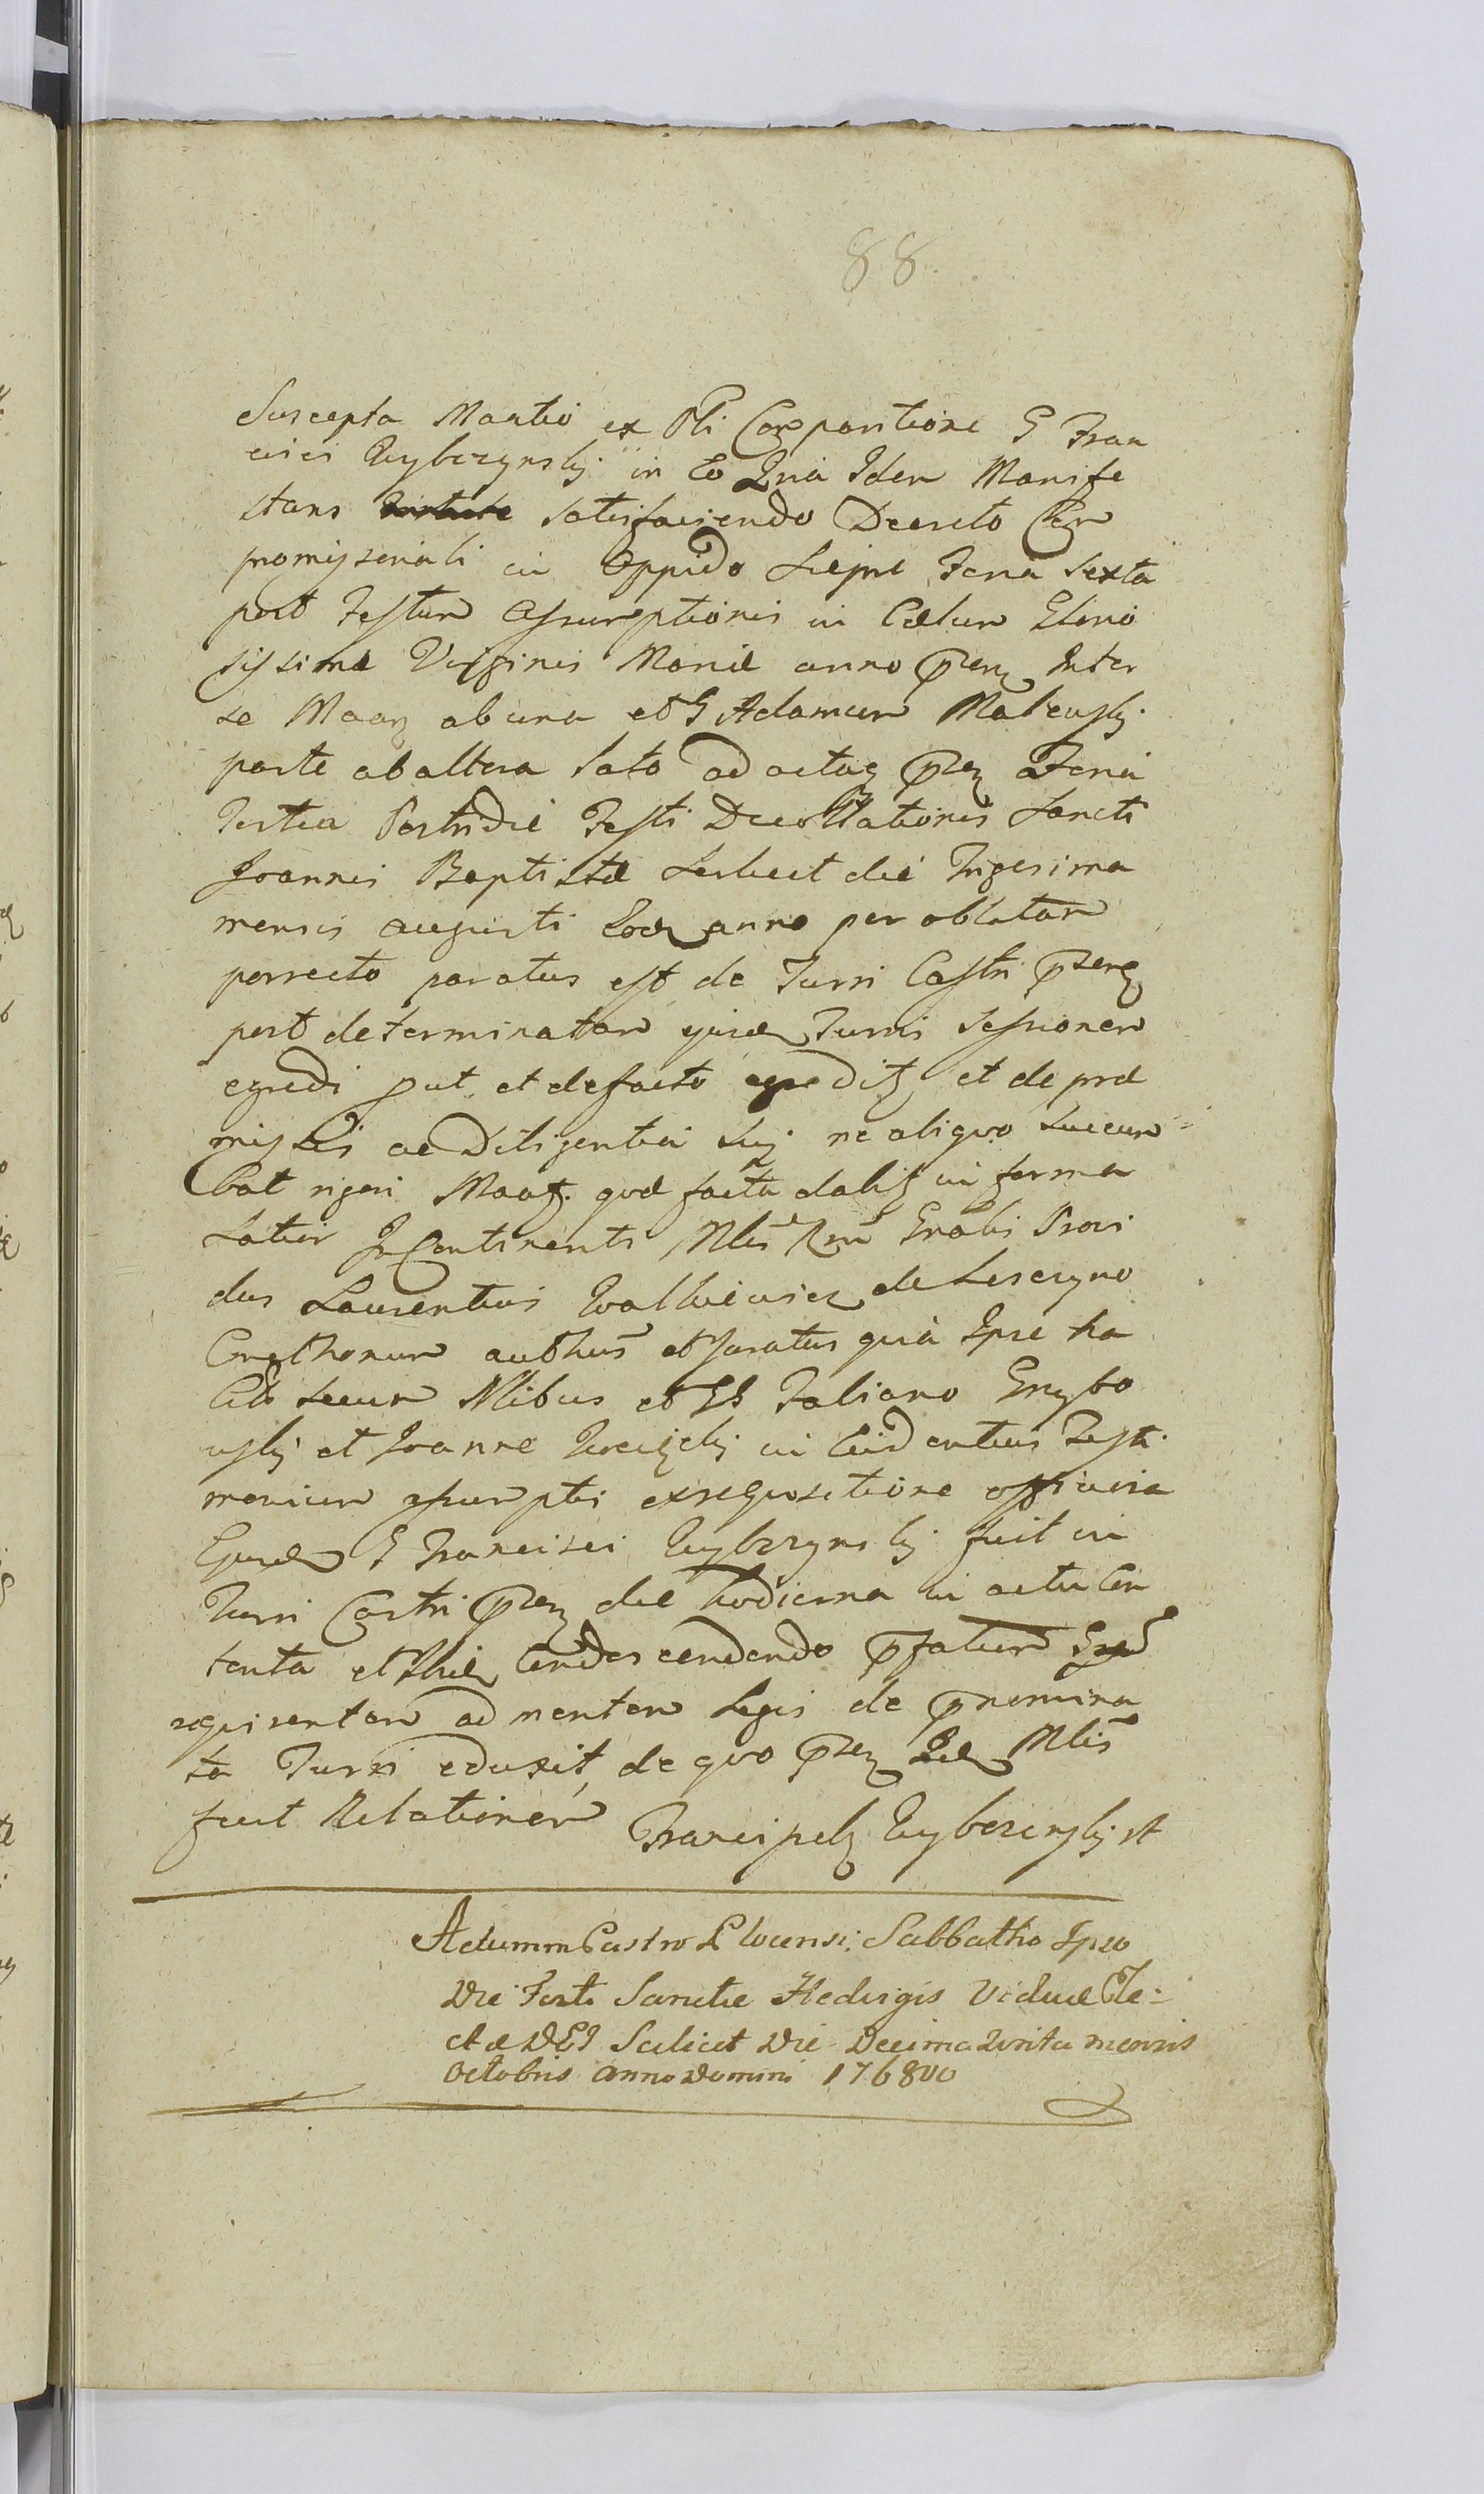 88
Suscepta Maatio ex Pli Comparitione G Fran
cisci Rybczynskj in Eo Quia Idem Manife
stans satisfaciendo Decreto Com
promissoriali in Oppido Feria Sexta
post Festum Assumptionis in Cælum Glorio
sissimæ Virginis Mariæ anno præn Inter
se Maan ab una et G Adamum
parte ab altera lato ad actaq præn Feria
Tertia Postridie Festi Decollationis Sancti
Joannis Baptistæ scilicet die Trigesima
mensis Augusti Eod anno per oblatam
porrecto paratus est de Turri Castri præn
post determinatam ejusd Turris sessionem
egredi put et defacto egredit et de præ
missis ac Diligentia ne aliquo succum
bat rigori Maat. quæ facta dabit in forma
Latior In Continenti Mlis Rni Gnalis Provi
dus Laurentius de
Cmethonum authus et Juratus quia Ipse ha
bito secum Nlibus et GG Fabiano Grzybo
wskj et Joanne in Evidentius Testi
monium assumptis ex requisitione officiosa
Ejusd G Francisci Rybczynskj fuit in
Turri Castri præn die hodierna in actu Con
tenta et Ibid Condescendendo pfatum
requirentem ad mentem Legis de prænomina
ta Turri eduxit, de quo præn Id Mlis
fecit Relationem Rybczinskj
Actum in Castro Plocensi Sabbatho Ipso
Die Festi Sanctæ Hedvigis Viduæ Ele:
ctæ DEI Scilicet Die Decima Quinta mensis
Octobris Anno Domini 1768vo